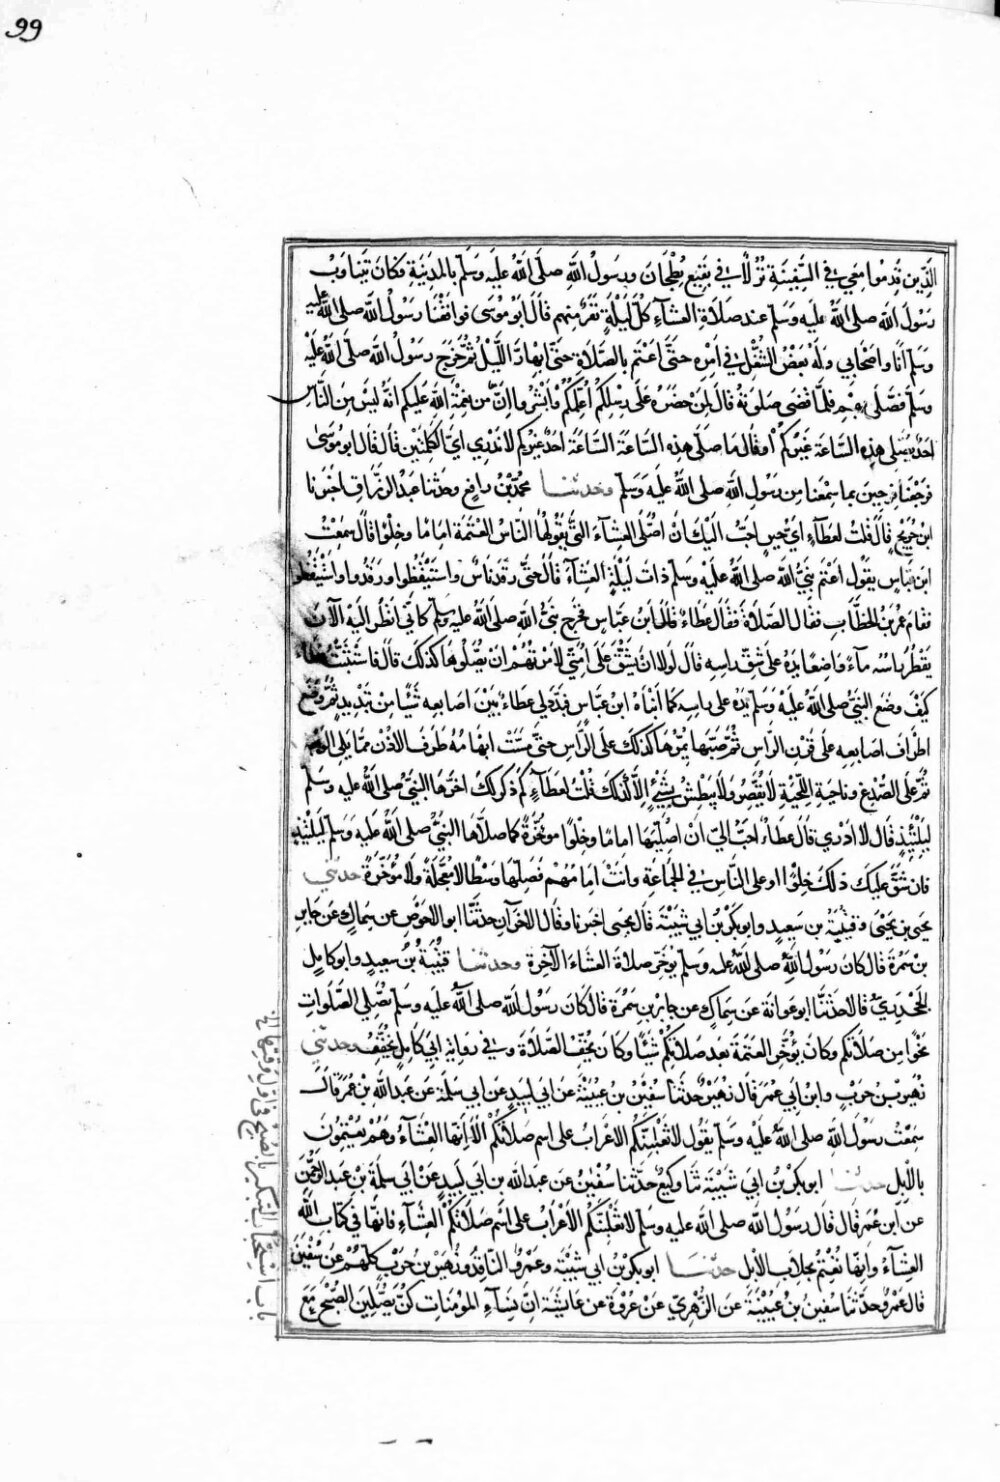 99
الَّذِينَ قَدِمُوا مَعِي فِي السَّفِينَةِ نُزُلًا فِي بَقِيعِ بُطْحَانَ وَرَسُولُ اللَّهِ صَلَّى اللَّهُ عَلَيْهِ وَسَلَّمَ بِالْمَدِينَةِ فَكَانَ يَتَنَاوَبُ
رَسُولَ اللَّهِ صَلَّى اللَّهُ عَلَيْهِ وَسَلَّمَ عِنْدَ صَلَاةِ الْعِشَاءِ كُلَّ لَيْلَةٍ نَفَرٌ مِنْهُمْ قَالَ أَبُو مُوسَى فَوَافَقْنَا رَسُولَ اللَّهِ صَلَّى اللَّهُ عَلَيْهِ
وَسَلَّمَ أَنَا وَأَصْحَابِي وَلَهُ بَعْضُ الشُّغْلِ فِي أَمْرِهِ حَتَّى أَعْتَمَ بِالصَّلَاةِ حَتَّى ابْهَارَّ اللَّيْلُ ثُمَّ خَرَجَ رَسُولُ اللَّهِ صَلَّى اللَّهُ عَلَيْهِ
وَسَلَّمَ فَصَلَّى بِهِمْ فَلَمَّا قَضَى صَلَوتَهُ قَالَ لِمَنْ حَضَرَهُ عَلَى رِسْلِكُمْ أُعْلِمُكُمْ وَأَبْشِرُوا إِنَّ مِنْ نِعْمَةِ اللَّهِ عَلَيْكُمْ أَنَّهُ لَيْسَ مِنَ النَّاسِ
أَحَدٌ يُصَلِّي هَذِهِ السَّاعَةَ غَيْرُكُمْ أَوْ قَالَ مَا صَلَّى هَذِهِ السَّاعَةَ السَّاعَةَ أَحَدٌ غَيْرُكُمْ لَا نَدْرِي أَيَّ الْكَلِمَتَيْنِ قَالَ قَالَ أَبُو مُوسَى
فَرَجَعْنَا فَرِحِينَ بِمَا سَمِعْنَا مِنْ رَسُولِ اللَّهِ صَلَّى اللَّهُ عَلَيْهِ وَسَلَّمَ وَحَدَّثَنَا مُحَمَّدُ بْنُ رَافِعٍ وَحَدَّثَنَا عَبْدُ الرَّزَّاقِ أَخْبَرَنَا
ابْنُ جُرَيْجٍ قَالَ قُلْتُ لِعَطَاءٍ أَيُّ حِينٍ أَحَبُّ إِلَيْكَ أَنْ أُصَلِّيَ الْعِشَاءَ الَّتِي يَقُولُهَا النَّاسُ الْعَتَمَةَ إِمَامًا وَخِلْوًا قَالَ سَمِعْتُ
ابْنَ عَبَّاسٍ يَقُولُ أَعْتَمَ نَبِيُّ اللَّهِ صَلَّى اللَّهُ عَلَيْهِ وَسَلَّمَ ذَاتَ لَيْلَةٍ الْعِشَاءَ قَالَ حَتَّى رَقَدَ نَاسٌ وَاسْتَيْقَظُوا وَرَقَدُوا وَاسْتَيْقَظُوا
فَقَامَ عُمَرُ بْنُ الْخَطَّابِ فَقَالَ الصَّلَاةَ فَقَالَ عَطَاءٌ قَالَ ابْنُ عَبَّاسٍ فَخَرَجَ نَبِيُّ اللَّهِ صَلَّى اللَّهُ عَلَيْهِ وَسَلَّمَ كَأَنِّي أَنْظُرُ إِلَيْهِ الْآنَ
يَقْطُرُ رَأْسُهُ مَاءً وَاضِعًا يَدَهُ عَلَى شِقِّ رَأْسِهِ قَالَ لَوْلَا أَنْ يَشُقَّ عَلَى أُمَّتِي لَأَمَرْتُهُمْ أَنْ يُصَلُّوهَا كَذَلِكَ قَالَ فَاسْتَثْبَتُّ عَطَاءً
كَيْفَ وَضَعَ النَّبِيُّ صَلَّى اللَّهُ عَلَيْهِ وَسَلَّمَ يَدَهُ عَلَى رَأْسِهِ كَمَا أَنْبَأَهُ ابْنُ عَبَّاسٍ فَبَدَّدَ لِي عَطَاءٌ بَيْنَ أَصَابِعِهِ شَيْئًا مِنْ تَبْدِيدٍ ثُمَّ وَضَعَ
أَطْرَافَ أَصَابِعِهِ عَلَى قَرْنِ الرَّأْسِ ثُمَّ صَبَّهَا يُمِرُّهَا كَذَلِكَ عَلَى الرَّأْسِ حَتَّى مَسَّتْ إِبْهَامُهُ طَرَفَ الْأُذُنِ مِمَّا يَلِي الْوَجْهَ
ثُمَّ عَلَى الصُّدْغِ وَنَاحِيَةِ اللِّحْيَةِ لَا يُقَصِّرُ وَلَا يَبْطِشُ بِشَيْءٍ إِلَّا كَذَلِكَ قُلْتُ لِعَطَاءٍ كَمْ ذُكِرَ لَكَ أَخَّرَهَا النَّبِيُّ صَلَّى اللَّهُ عَلَيْهِ وَسَلَّمَ
لَيْلَتَئِذٍ قَالَ لَا أَدْرِي قَالَ عَطَاءٌ أَحَبُّ إِلَيَّ أَنْ أُصَلِّيَهَا إِمَامًا وَخِلْوًا مُؤَخَّرَةً كَمَا صَلَّاهَا النَّبِيُّ صَلَّى اللَّهُ عَلَيْهِ وَسَلَّمَ لَيْلَتَئِذٍ
فَإِنْ شَقَّ عَلَيْكَ ذَلِكَ خِلْوًا أَوْ عَلَى النَّاسِ فِي الْجَمَاعَةِ وَأَنْتَ إِمَامُهُمْ فَصَلِّهَا وَسَطًا لَا مُعَجَّلَةً وَلَا مُؤَخَّرَةً حَدَّثَنِي
يَحْيَى بْنُ يَحْيَى وَقُتَيْبَةُ بْنُ سَعِيدٍ وَأَبُو بَكْرِ بْنُ أَبِي شَيْبَةَ قَالَ يَحْيَى أَخْبَرَنَا وَقَالَ الْآخَرَانِ حَدَّثَنَا أَبُو الْأَحْوَصِ عَنْ سِمَاكٍ عَنْ جَابِرِ
بْنِ سَمُرَةَ قَالَ كَانَ رَسُولُ اللَّهِ صَلَّى اللَّهُ عَلَيْهِ وَسَلَّمَ يُؤَخِّرُ صَلَاةَ الْعِشَاءِ الْآخِرَةِ وَحَدَّثَنَا قُتَيْبَةُ بْنُ سَعِيدٍ وَأَبُو كَامِلٍ
الْجَحْدَرِيُّ قَالَا حَدَّثَنَا أَبُو عَوَانَةَ عَنْ سِمَاكٍ عَنْ جَابِرِ بْنِ سَمُرَةَ قَالَ كَانَ رَسُولُ اللَّهِ صَلَّى اللَّهُ عَلَيْهِ وَسَلَّمَ يُصَلِّي الصَّلَوَاتِ
نَحْوًا مِنْ صَلَاتِكُمْ وَكَانَ يُؤَخِّرُ الْعَتَمَةَ بَعْدَ صَلَاتِكُمْ شَيْئًا وَكَانَ يُخِفُّ الصَّلَاةَ وَفِي رِوَايَةِ أَبِي كَامِلٍ يُخَفِّفُ وَحَدَّثَنِي
زُهَيْرُ بْنُ حَرْبٍ وَابْنُ أَبِي عُمَرَ قَالَ زُهَيْرٌ حَدَّثَنَا سُفْيَنُ بْنُ عُيَيْنَةَ عَنِ ابْنِ أَبِي لَبِيدٍ عَنْ أَبِي سَلَمَةَ عَنْ عَبْدِ اللَّهِ بْنِ عُمَرَ قَالَ
سَمِعْتُ رَسُولَ اللَّهِ صَلَّى اللَّهُ عَلَيْهِ وَسَلَّمَ يَقُولُ لَا تَغْلِبَنَّكُمُ الْأَعْرَابُ عَلَى اسْمِ صَلَاتِكُمْ أَلَا إِنَّهَا الْعِشَاءُ وَهُمْ يُعْتِمُونَ
بِالْإِبِلِ حَدَّثَنَا أَبُو بَكْرِ بْنُ أَبِي شَيْبَةَ ثَنَا وَكِيعٌ حَدَّثَنَا سُفْيَنُ عَنْ عَبْدِ اللَّهِ بْنِ أَبِي لَبِيدٍ عَنْ أَبِي سَلَمَةَ بْنِ عَبْدِ الرَّحْمَنِ
عَنِ ابْنِ عُمَرَ قَالَ قَالَ رَسُولُ اللَّهِ صَلَّى اللَّهُ عَلَيْهِ وَسَلَّمَ لَا تَغْلِبَنَّكُمُ الْأَعْرَابُ عَلَى اسْمِ صَلَاتِكُمُ الْعِشَاءِ فَإِنَّهَا فِي كِتَابِ اللَّهِ
الْعِشَاءُ وَإِنَّهَا تُعْتِمُ بِحِلَابِ الْإِبِلِ حَدَّثَنَا أَبُو بَكْرِ بْنُ أَبِي شَيْبَةَ وَعَمْرٌو النَّاقِدُ وَزُهَيْرُ بْنُ حَرْبٍ كُلُّهُمْ عَنْ سُفْيَنَ
قَالَ عَمْرٌو حَدَّثَنَا سُفْيَنُ بْنُ عُيَيْنَةَ عَنِ الزُّهْرِيِّ عَنْ عُرْوَةَ عَنْ عَايِشَةَ أَنَّ نِسَاءَ الْمُؤْمِنَاتِ كُنَّ يُصَلِّينَ الصُّبْحَ مَعَ
باب استحباب التبكير بالصبح في اول وقتها الخ